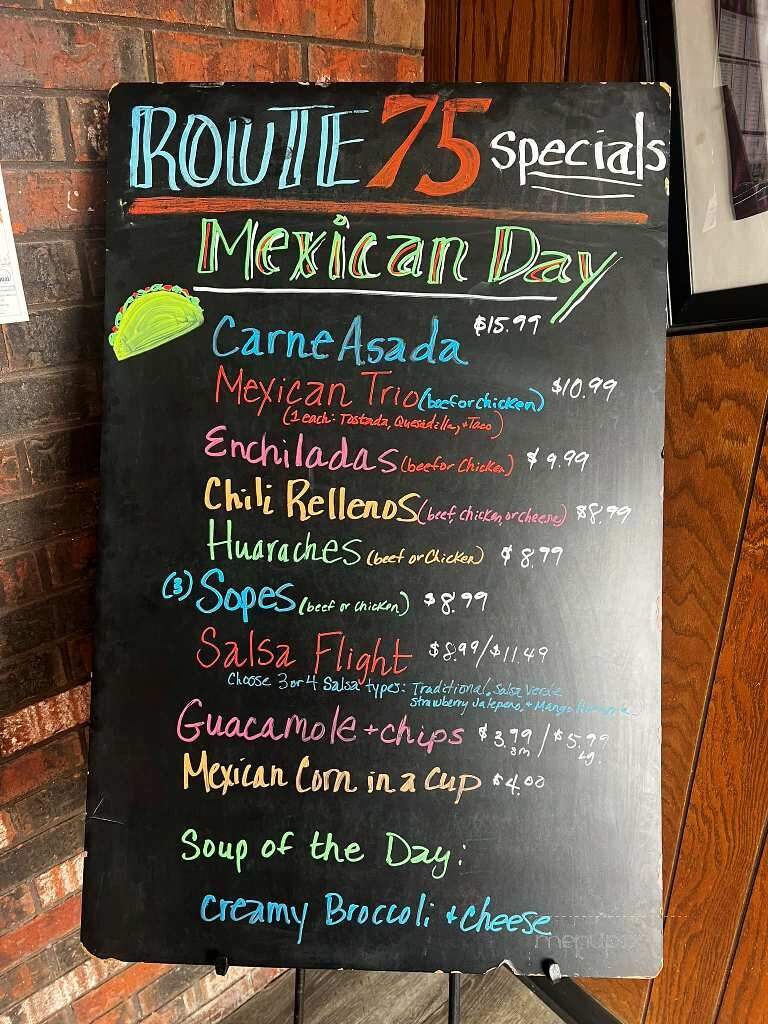 ROUTE 75 specials
Mexican Day
Carne Asada $15.99
Mexican Trio (beef or chicken) $10.99
(1 each: Tostada, Quesadilla, + Taco)
Enchiladas (beef or Chicken) $9.99
Chili Rellenos (beef, chicken, or cheese) $8.99
Huaraches (beef or Chicken) $8.99
(3) Sopes (beef or chicken) $8.99
Salsa Flight $8.99/$11.49
Choose 3 or 4 Salsa types: Traditional, Salsa Verde
strawberry Jalepeno, + Mango
Guacamole + chips $3.99 / $5.99
sm Lg.
Mexican Corn in a cup $4.00
Soup of the Day:
creamy Broccoli + cheese